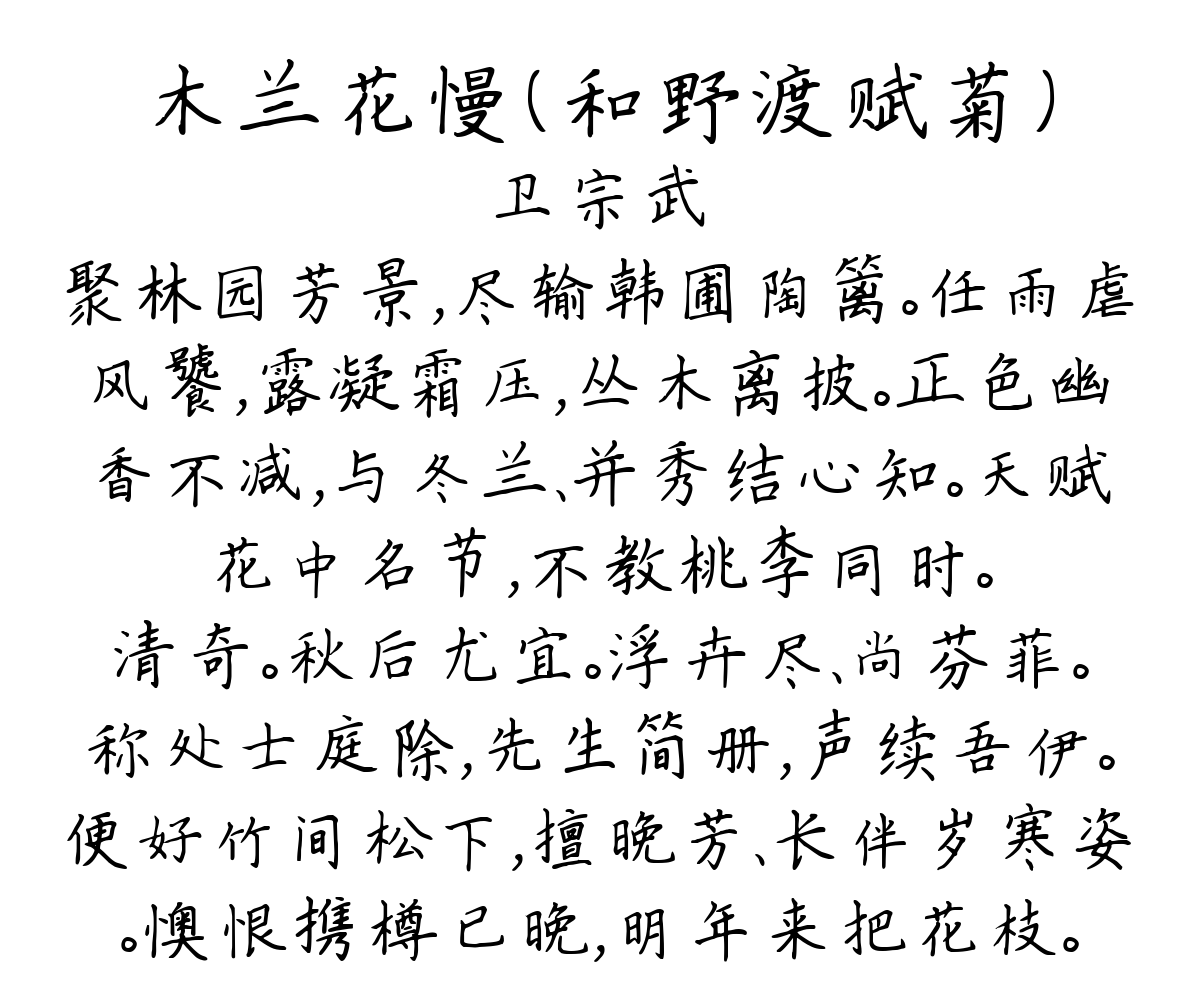 木兰花慢(和野渡赋菊)
卫宗武
聚林园芳景,尽输韩圃陶篱。任雨虐
风饕,露凝霜压,丛木离披。正色幽
香不减,与冬兰、并秀结心知。天赋
花中名节,不教桃李同时。
清奇。秋后尤宜。浮卉尽、尚芬菲。
称处士庭除,先生简册,声续吾伊。
便好竹间松下,擅晚芳、长伴岁寒姿
。懊恨携樽已晚,明年来把花枝。